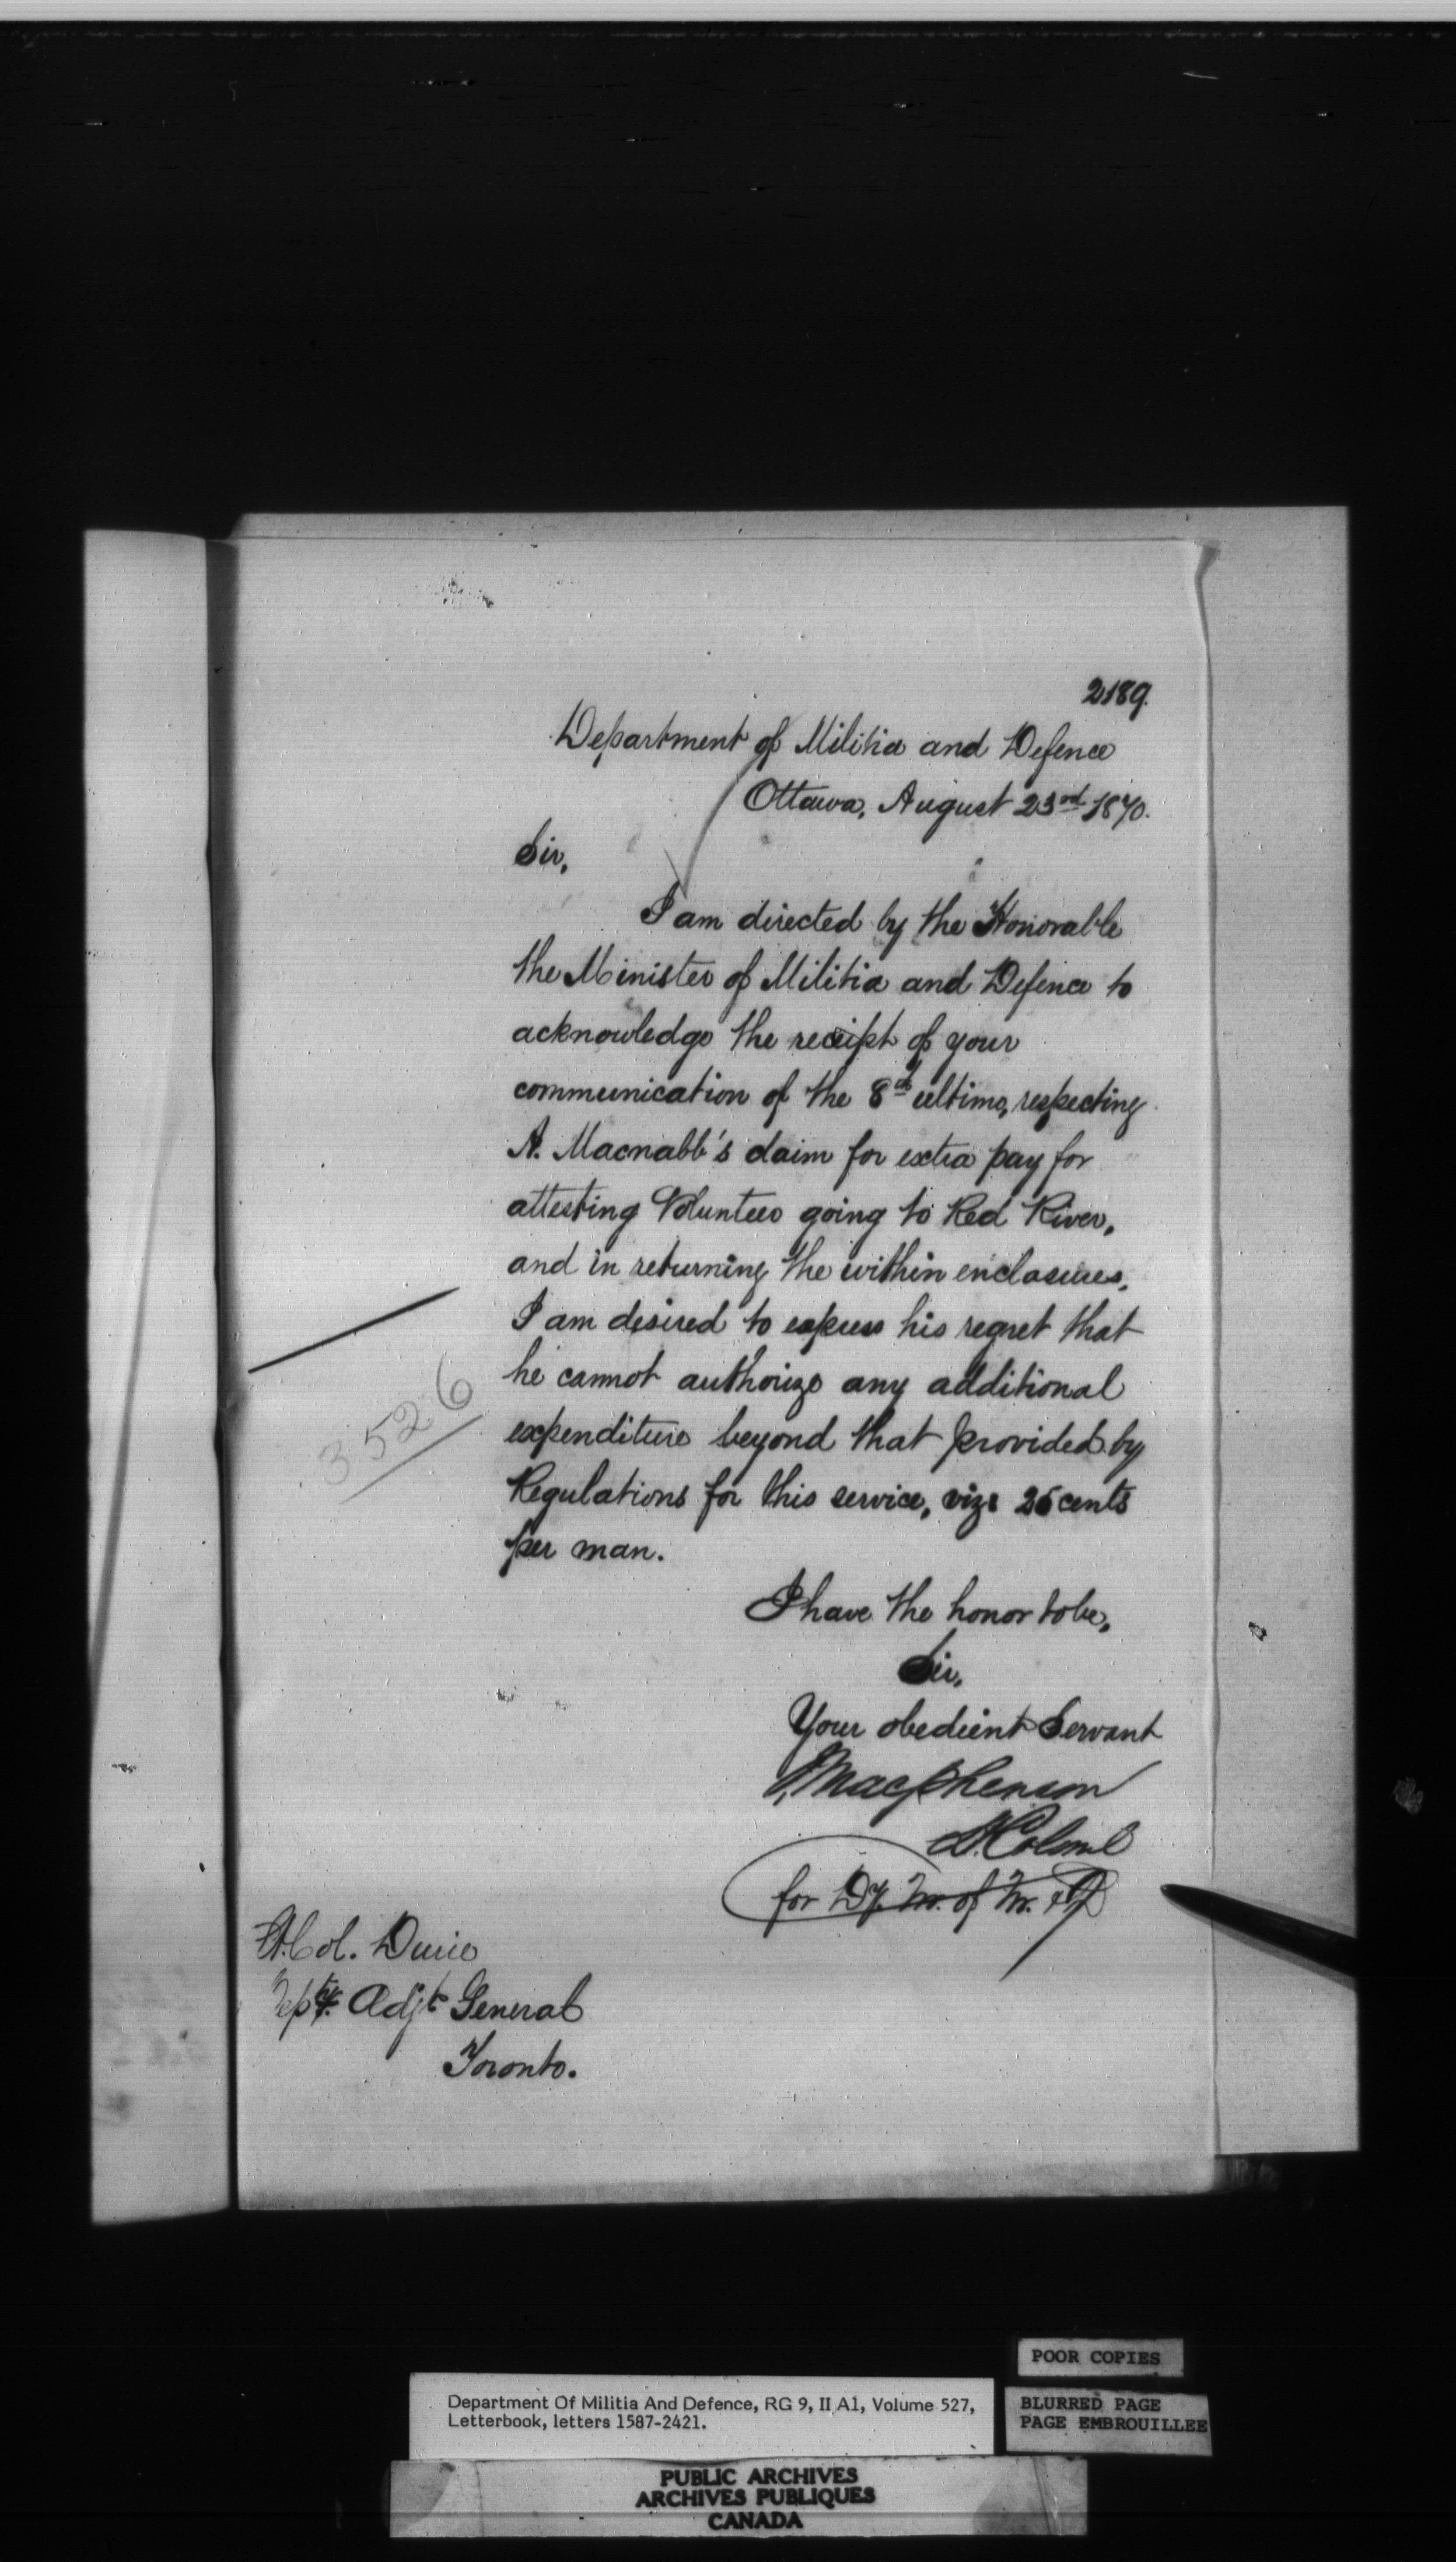 2189.
Department of Militia and Defence
Ottawa, August 23rd 1870.
Sir,
I am directed by the Honorable
the Minister of Militia and Defence to
acknowledge the receipt of your
communication of the 8th ultimo, respecting
A. Macnabb's claim for extra pay for
attesting Volunteers going to Red River,
and in returning the within enclosures,
I am desired to express his regret that
he cannot authorize any additional
expenditure beyond that provided by
Regulations for this service, viz: 25 cents
per man.
3526
I have the honor to be,
Sir,
Your obedient Servant
Macpherson
Lt. Colonel
for Dy. M. of M. & D
Lt. Col. Durie
Depty. Adjt. General
Toronto.
POOR COPIES
Department Of Militia And Defence, RG 9, II A1, Volume 527,
Letterbook, letters 1587-2421.
BLURRED PAGE
PAGE EMBROUILLEE
PUBLIC ARCHIVES
ARCHIVES PUBLIQUES
CANADA